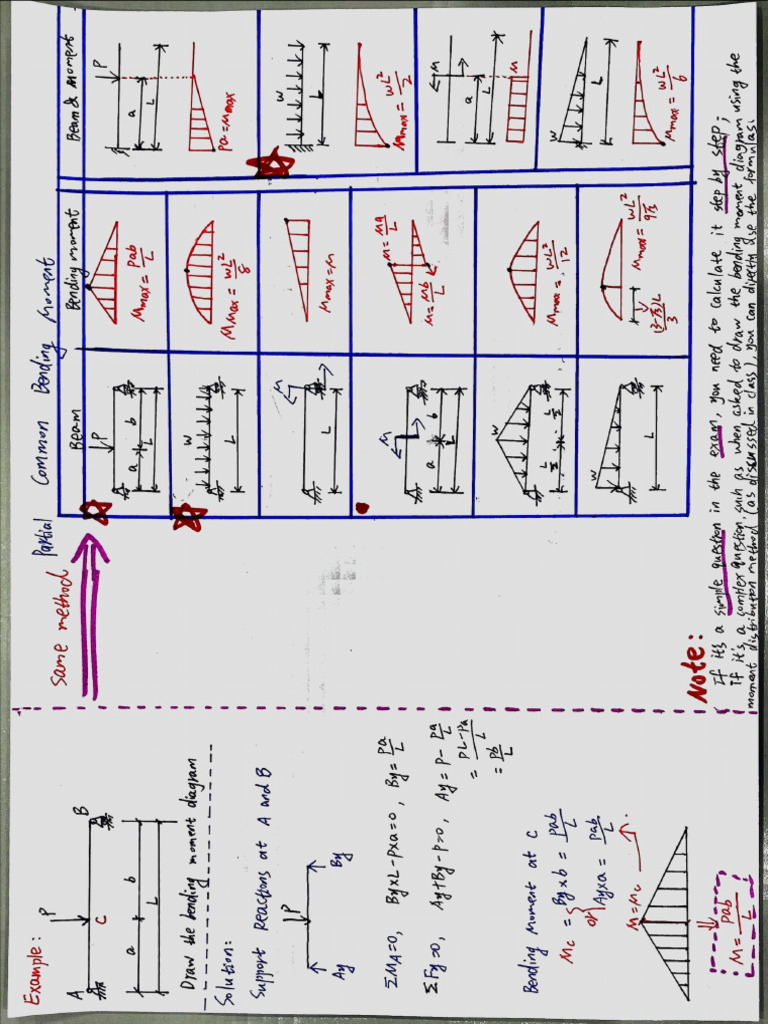 Example:
P
A
B
C
a
b
L
Draw the bending moment diagram
Solution:
Support Reactions at A and B
P
Ay
By
ΣMA=0, By×L-P×a=0, By=Pa/L
ΣFy=0, Ay+By-P=0, Ay=P-Pa/L
=PL-Pa/L
=Pb/L
Bending Moment at C
Mc = { By×b = Pab/L
or
Ay×a = Pab/L
M=Mc
M=Pab/L
Same method
Partial Common Bending Moment
Beam
Bending moment
Beam & Moment
P
a
b
L
Mmax=Pab/L
P
a
L
Pa=Mmax
W
L
Mmax=WL²/8
W
L
Mmax=WL²/2
M
L
Mmax=M
M
a
L
M
M
a
b
L
M=Ma/L
M=Mb/L
W
L
Mmax=WL²/6
W
L/2
L/2
Mmax=WL²/12
W
L
Mmax=WL²/9√3
(3-√3)L/3
Note:
If it's a simple question in the exam, you need to calculate it step by step;
If it's a complex question, such as when asked to draw the bending moment diagram using the
moment distribution method (as discussed in class), you can directly use the formulas.